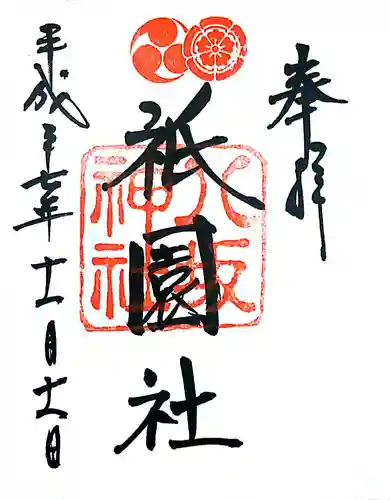 奉拝
祇園社
八坂
神社
平成二十七年十一月十六日